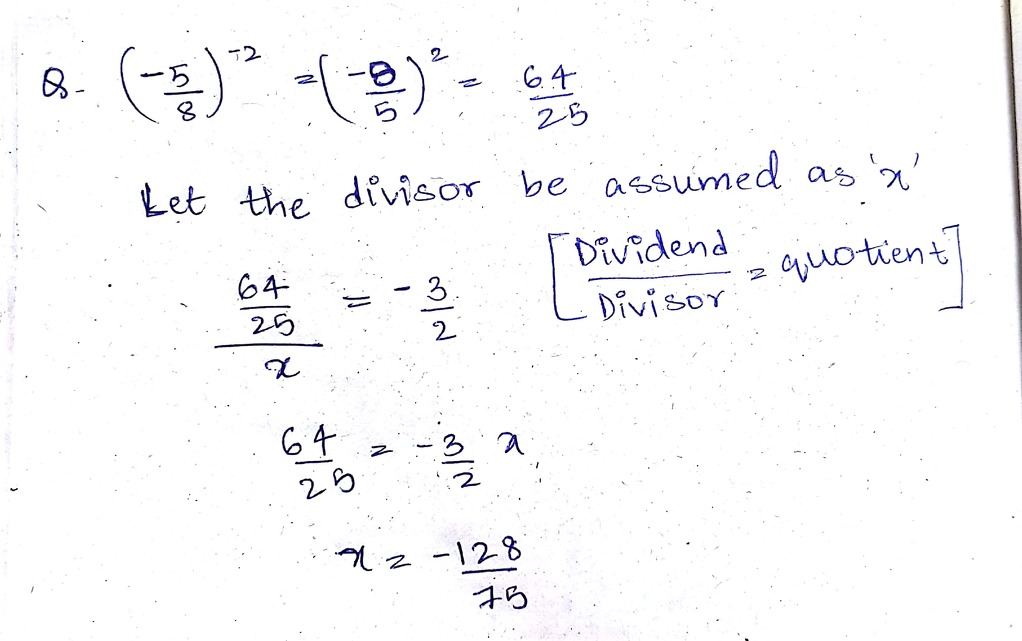 Q- (-5/8)^-2 = (-8/5)^2 = 64/25
Let the divisor be assumed as 'x'
(64/25)/x = -3/2 [Dividend/Divisor = quotient]
64/25 = -3/2 x
x = -128/75